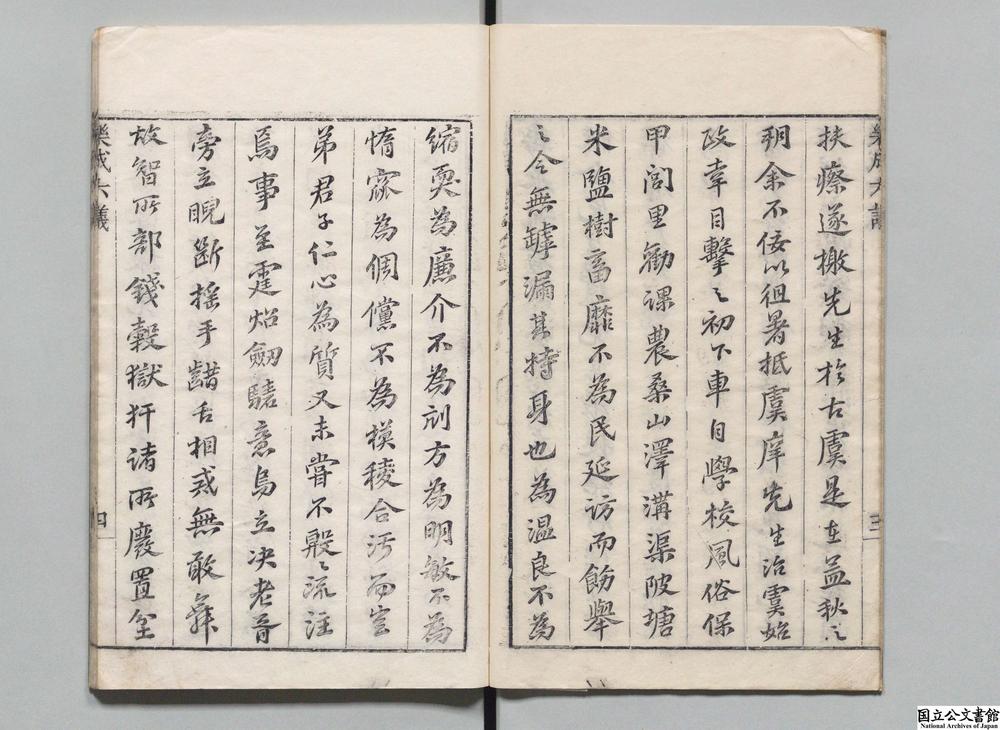 樂成六議
三
扶瘵遂檄先生於古虞是在孟秋之
朔余不佞以徂暑抵虞庠先生治虞始
政幸目擊之初下車自學校風俗保
甲閭里勸課農桑山澤溝渠陂塘
米鹽樹畜靡不為民延訪而飭舉
之今無罅漏其持身也為溫良不為
縮耎為廉介不為刓方為明敏不為
惰窳為倜儻不為模稜合污而豈
弟君子仁心為質又未嘗不殷殷流注
焉事至霆焰劒驍意烏立决老胥
旁立睨斷搖手齰舌相戒無敢舞
故智所部錢穀獄犴諸所廢置坌
樂成六議
四
国立公文書館
National Archives of Japan